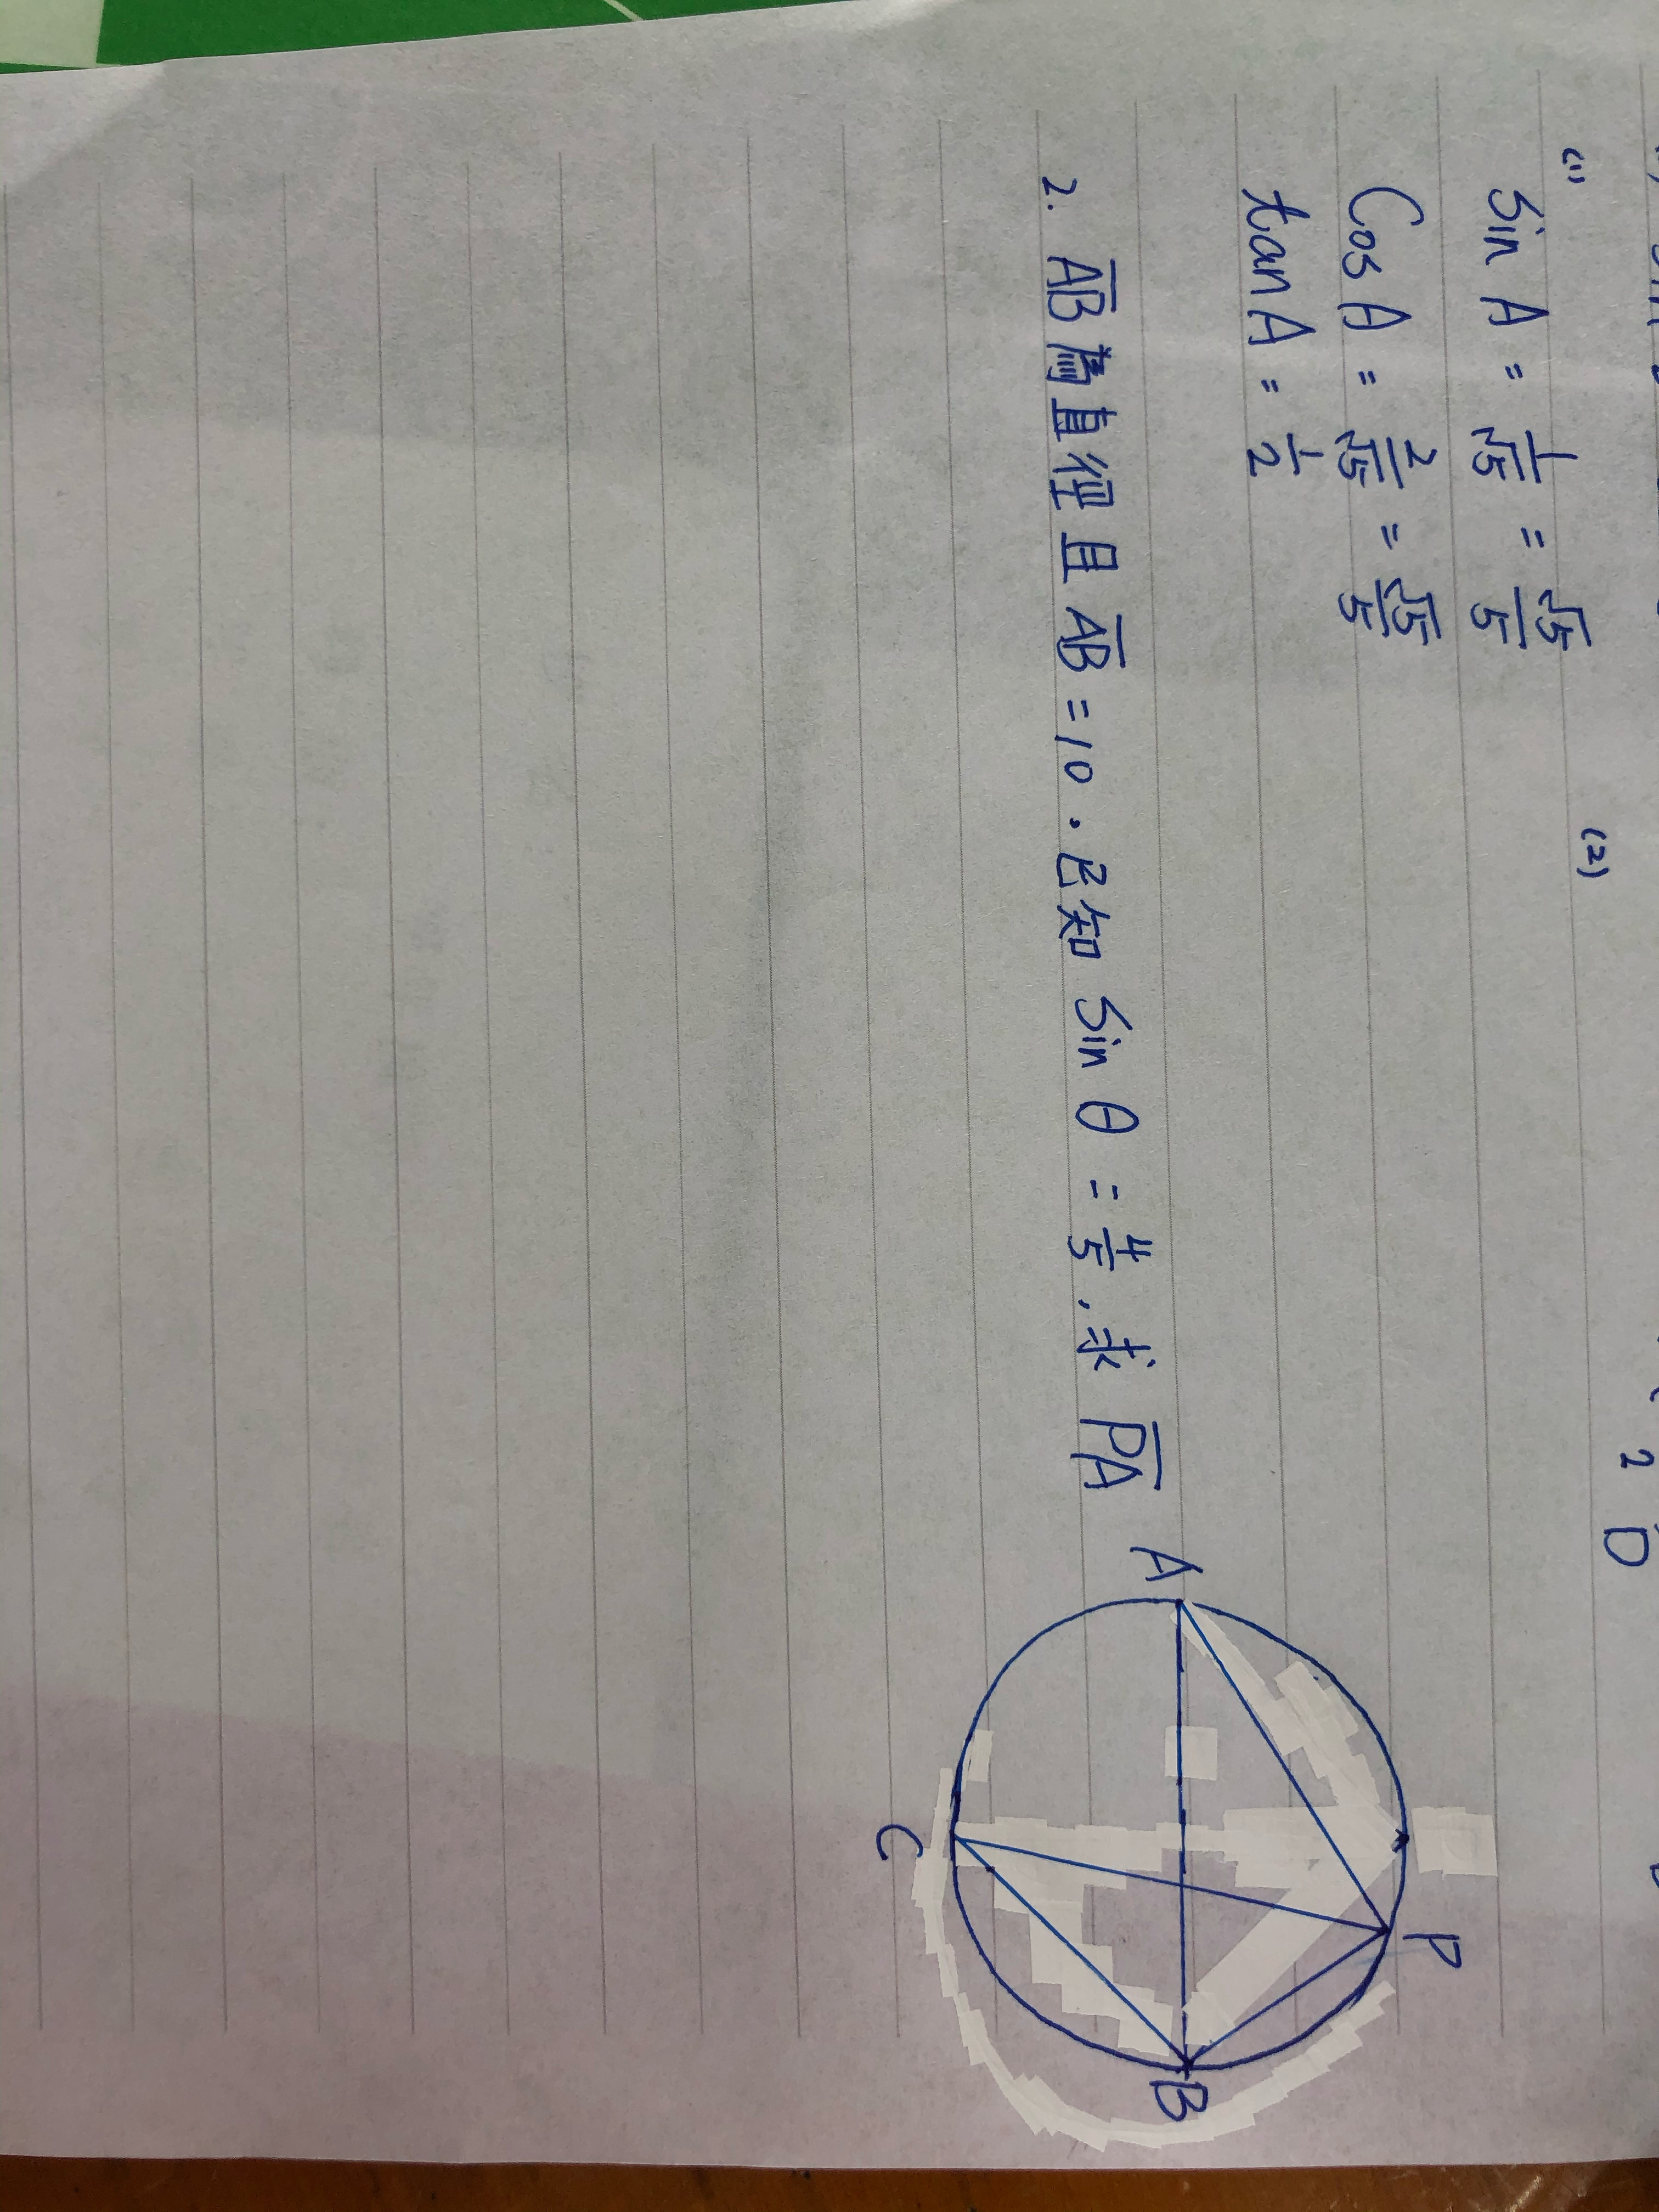 (1)
(2)
2 D
sin A = 1/√5 = √5/5
Cos A = 2/√5 = √5/5
tan A = 1/2
2. A̅B̅ 為直徑且 A̅B̅ = 10. 已知 sin θ = 4/5, 求 P̅A̅
A
P
B
C